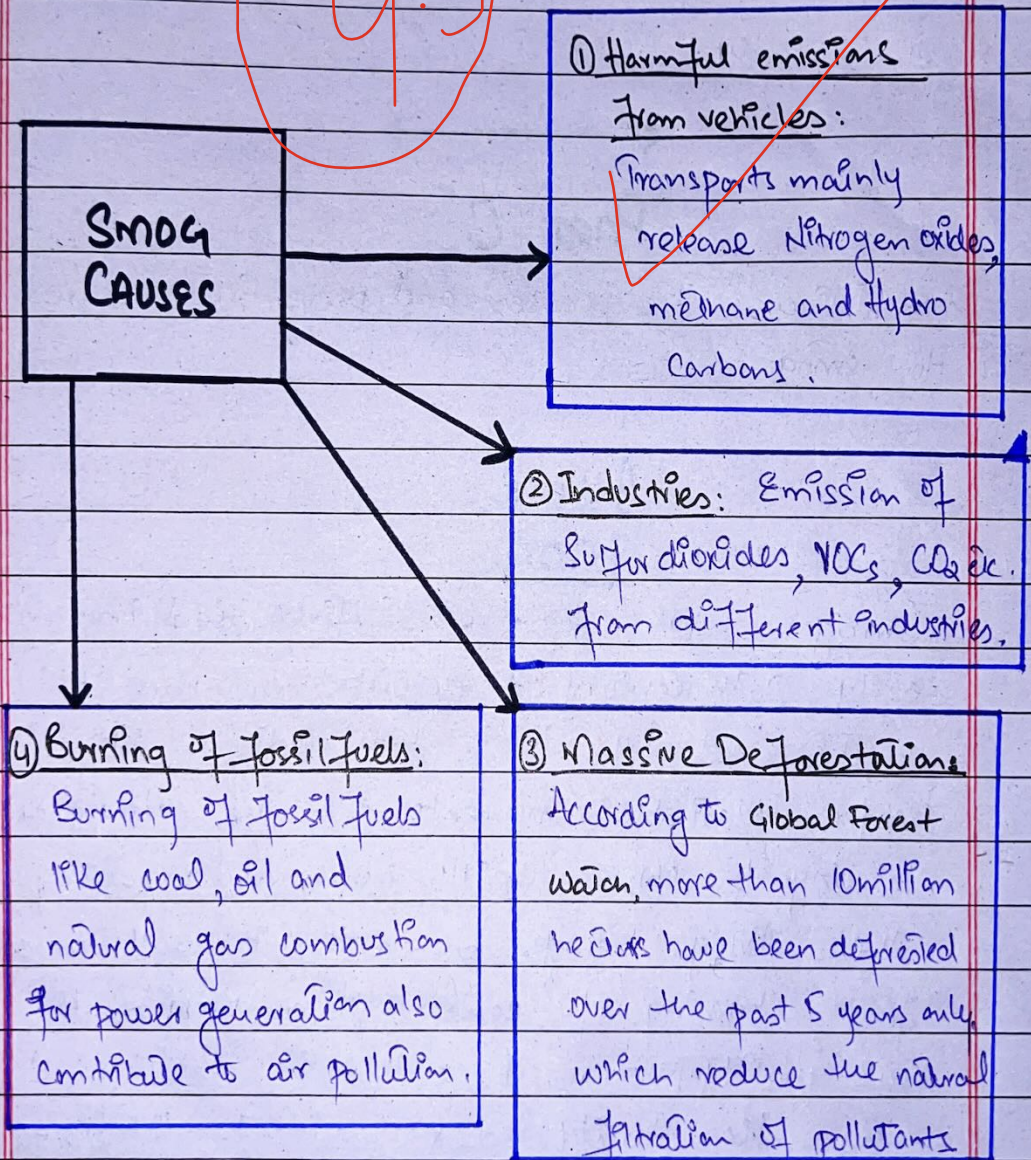 SMOG
CAUSES
① Harmful emissions
from vehicles:
Transports mainly
release Nitrogen oxides,
methane and Hydro
Carbons.
② Industries: Emission of
Sulfur dioxides, VOCs, CO2 etc.
from different industries.
③ Massive Deforestation:
According to Global Forest
Watch, more than 10million
hectors have been deforested
over the past 5 years only
which reduce the natural
filtration of pollutants
④ Burning of fossil fuels:
Burning of fossil fuels
like coal, oil and
natural gas combustion
for power generation also
contribute to air pollution.